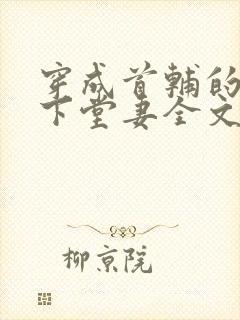 穿成首辅的
下堂妻全文
柳京院